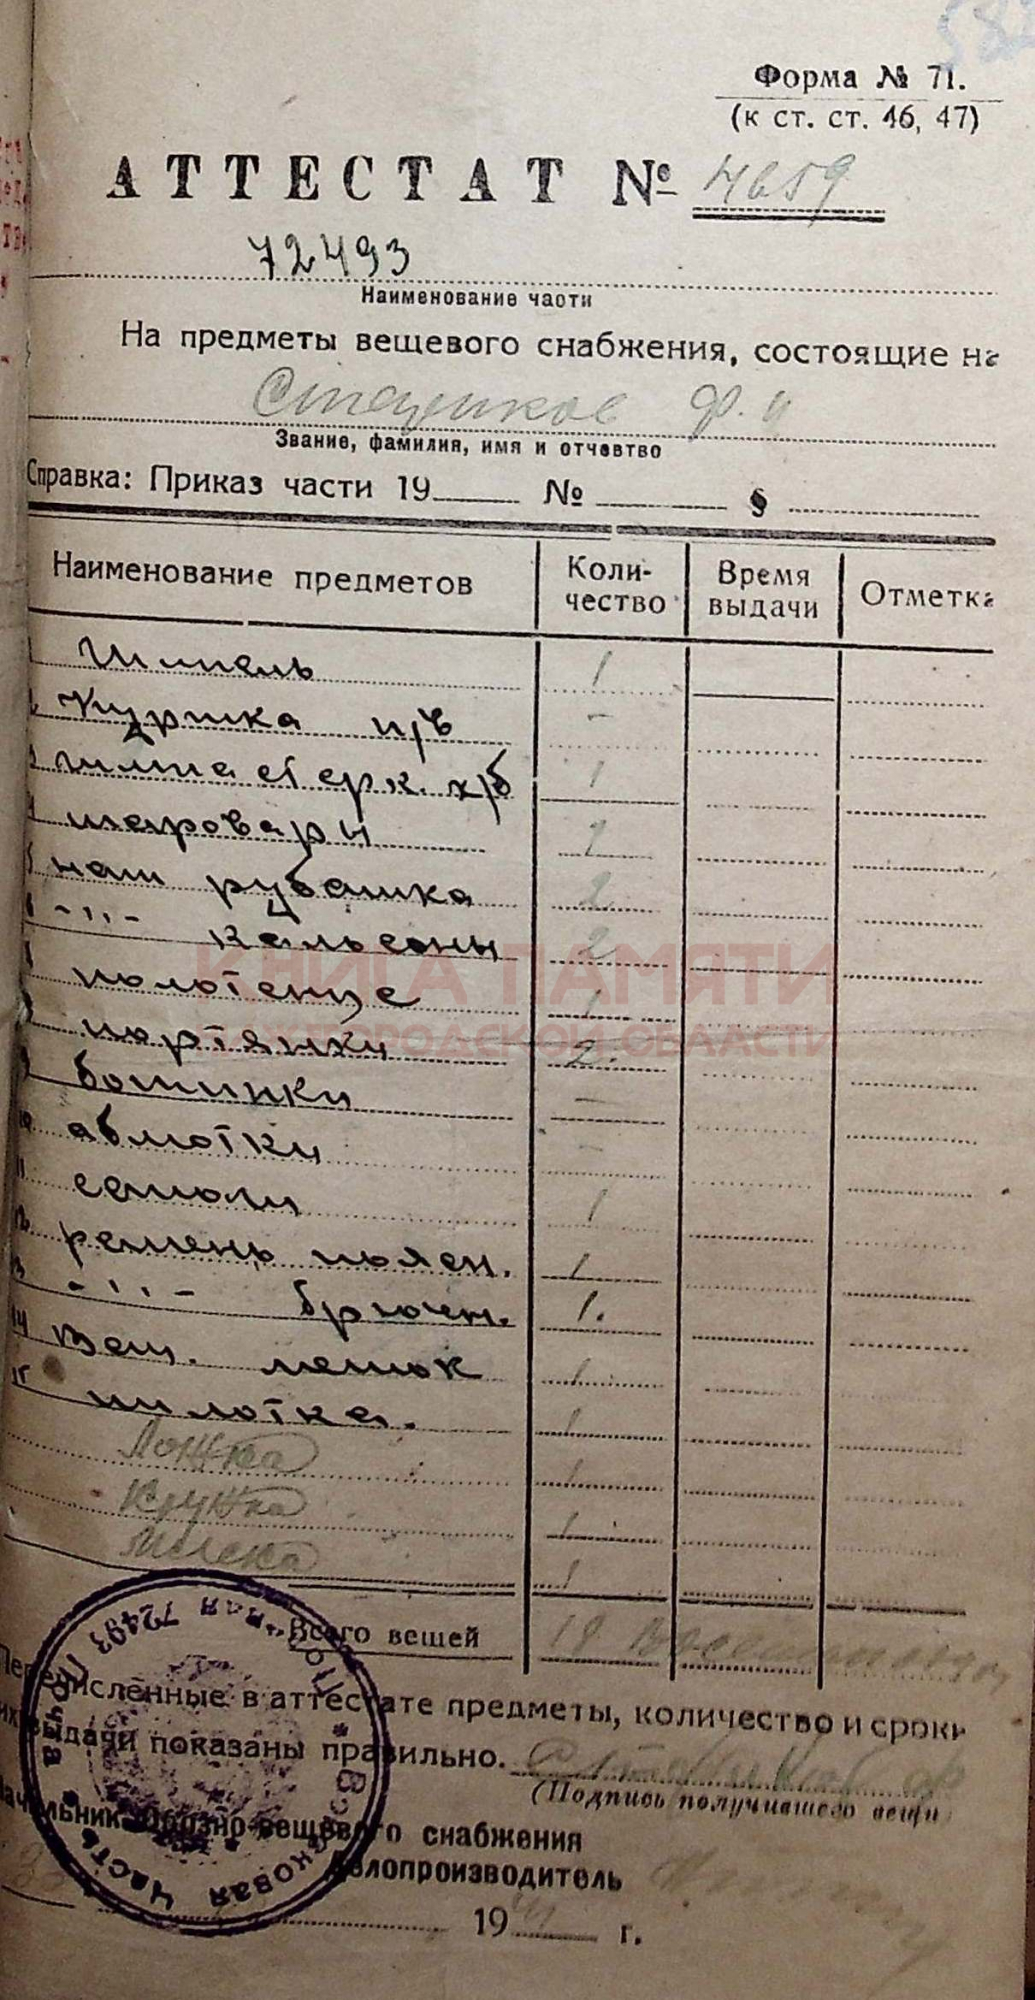 Форма № 71.
(к ст. ст. 46, 47)
АТТЕСТАТ № 4659
72493
Наименование части
На предметы вещевого снабжения, состоящие на
Ф. И
Звание, фамилия, имя и отчевтво
Справка: Приказ части 19 № §
Наименование предметов Коли- Время Отметка
чество выдачи
1 Шинель 1
2 Куртка и/в -
3 гимнастерк. х/б 1
4 шаровары 1
5 нат рубашка 2
6 -"- кальсоны 2
7 полотенце 1
8 портянки 2.
9 ботинки -
10 абмотки -
11 сапоги 1
12 ремень поясн. 1
13 -"- брючн. 1.
14 Вещ. мешок 1
15 пилотка. 1
Ложка 1
Кружка 1
1
Всего вещей 18
Перечисленные в аттестате предметы, количество и сроки
их выдачи показаны правильно.
(Подпись получившего вещи)
Начальник Обозно-вещевого снабжения
Делопроизводитель
19 г.
Войсковая часть 72493
КНИГА ПАМЯТИ
НИЖЕГОРОДСКОЙ ОБЛАСТИ